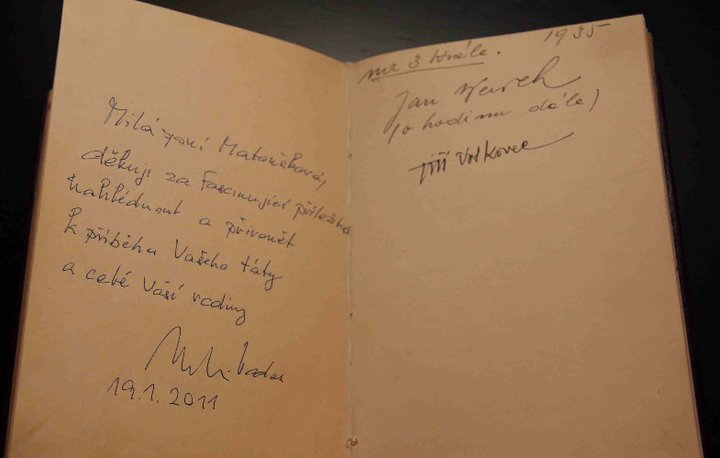 Milá paní Matoušková,
děkuji za fascinující příležitost
nahlédnout a přivonět
k příběhu Vašeho táty
a celé Vaší rodiny
19.1.2011
na 3 krále. 1935
Jan Werich
(o hodinu dále)
Jiří Voskovec